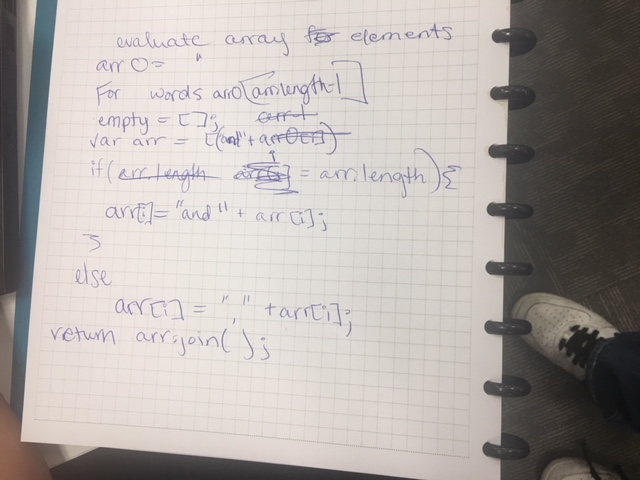 evaluate array elements
arr 0 = "
For words arr0[arr.length-1]
empty = [];
var arr = [("and" + arr0[i])
if( i = arr.length) {
arr[i]= "and" + arr[i];
}
else
arr[i] = "," + arr[i];
return arr.join( );